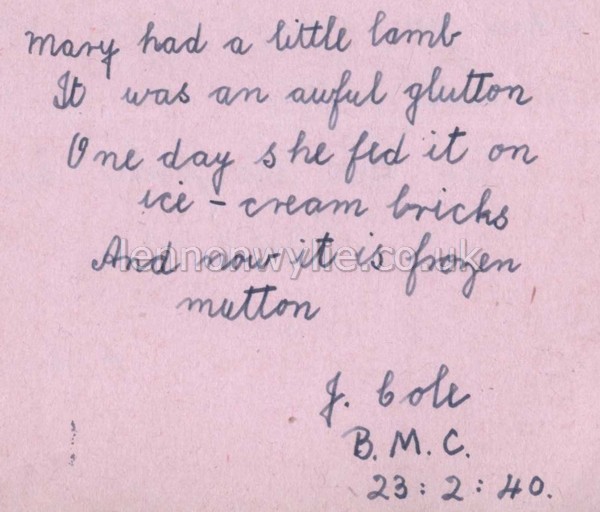 Mary had a little lamb
It was an awful glutton
One day she fed it on
ice - cream bricks
And now it is frozen
lennonwylie.co.uk
mutton
J. Cole
B. M. C.
23 : 2 : 40.